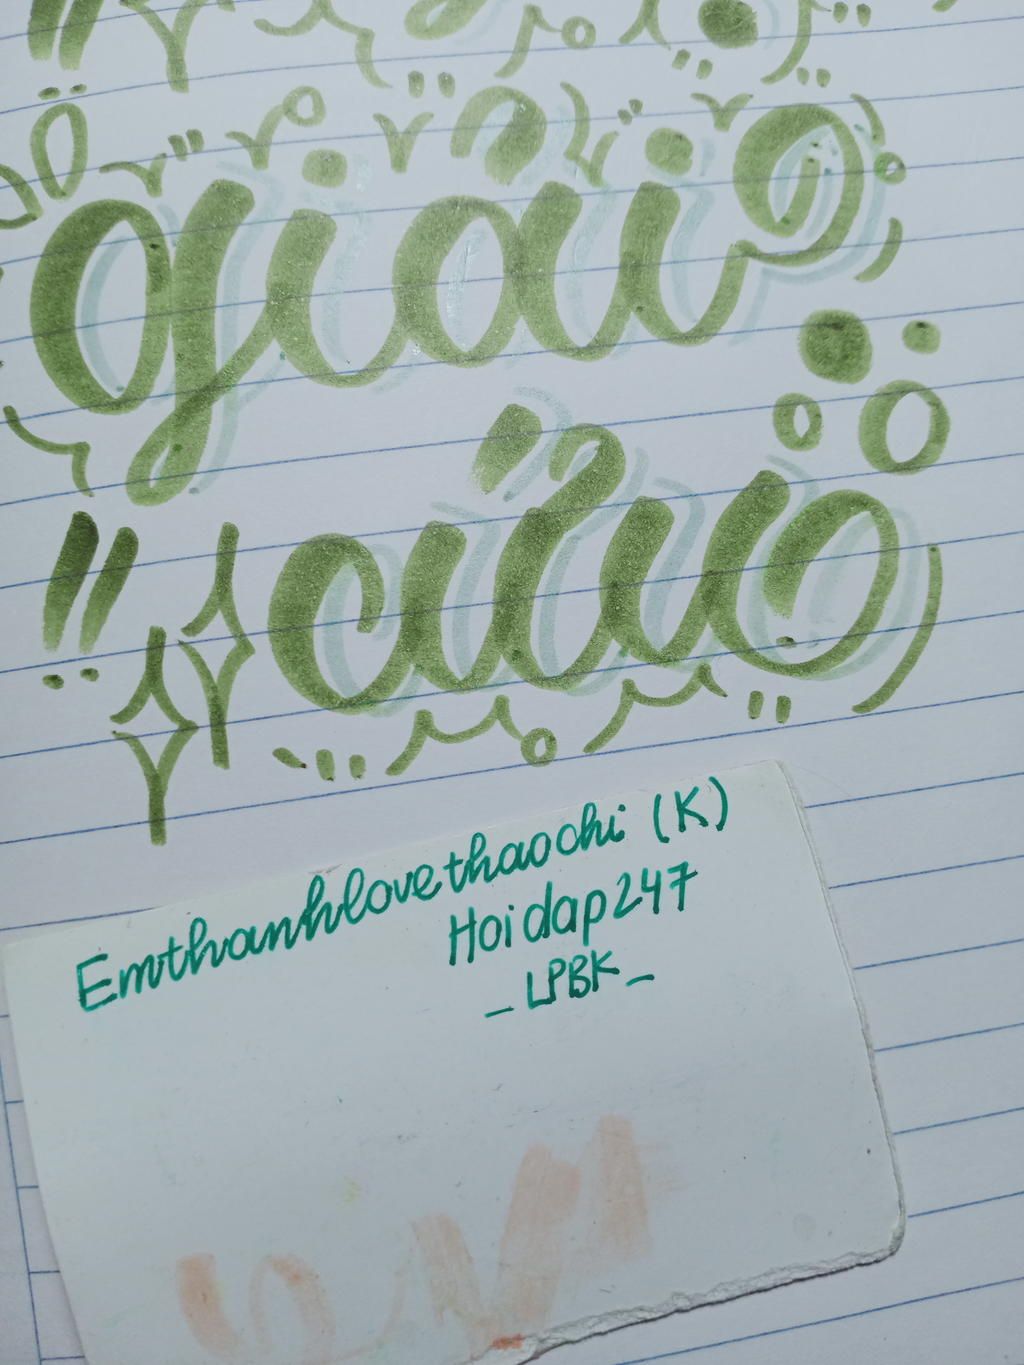 giải
cứu
Emthanhlovethaochi (K)
Hoidap247
_ LPBK _